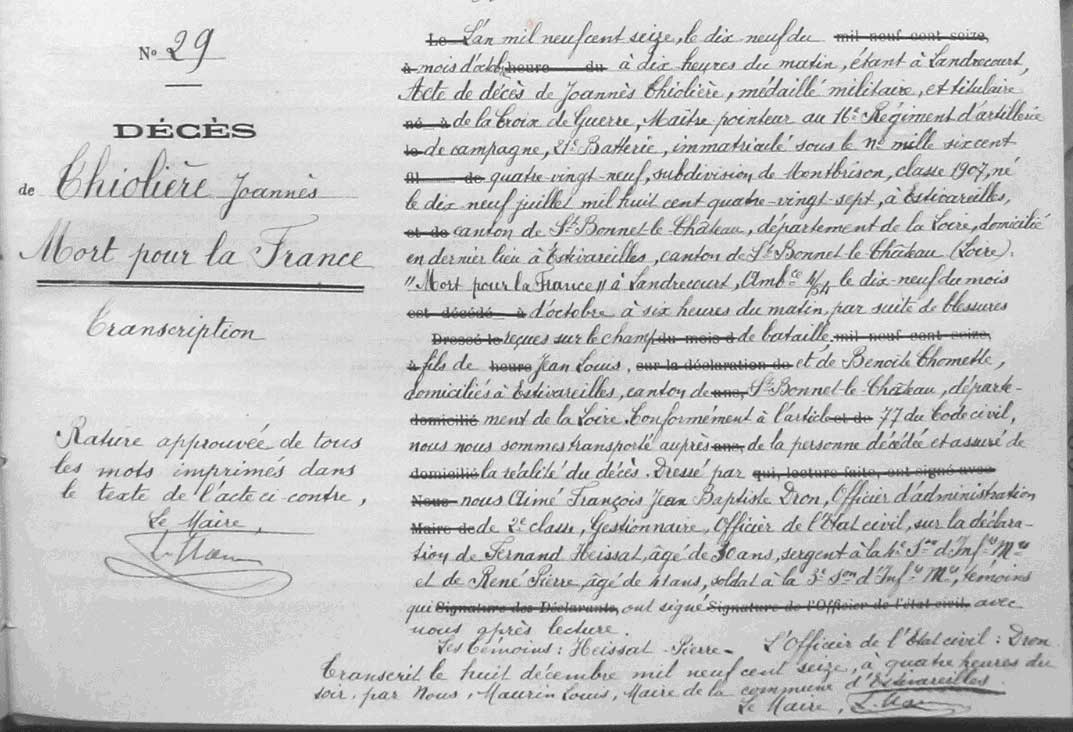 N° 29
DÉCÈS
de Thiolière Joannès
Mort pour la France
Transcription
Rature approuvée de tous
les mots imprimés dans
le texte de l'acte ci-contre,
Le Maire,
Le L'an mil neuf cent seize, le dix neuf du mil neuf cent seize,
à mois d'octob heure du à dix heures du matin, étant à Landrecourt,
Acte de décès de Joannès Thiolière, médaillé militaire, et titulaire
né à de la Croix de Guerre, Maître pointeur au 16e Régiment d'artillerie
le de campagne, 21e Batterie, immatriculé sous le no mille six cent
fil de quatre vingt neuf, subdivision de Montbrison, classe 1907, né
le dix neuf juillet mil huit cent quatre-vingt-sept, à Estivareilles,
et de canton de St Bonnet-le-Château, département de la Loire, domicilié
en dernier lieu à Estivareilles, canton de St Bonnet-le-Château (Loire).
"Mort pour la France" à Landrecourt, Ambce 4/54 le dix-neuf du mois
est décédé à d'octobre à six heures du matin, par suite de blessures
Dressé le reçues sur le champ du mois d de bataille mil neuf cent seize,
à fils de heure Jean Louis, sur la déclaration de et de Benoite Thomette,
domiciliés à Estivareilles, canton de ans, St Bonnet-le-Château, départe-
domicilié ment de la Loire Conformément à l'article et de 77 du Code civil,
nous nous sommes transporté auprès ans, de la personne décédée et assuré de
domicilié la réalité du décès. Dressé par qui, lecture faite, ont signé avec
Nous nous Aimé François Jean Baptiste Dron, Officier d'administration
Maire de de 2e classe, Gestionnaire, Officier de l'État civil, sur la déclara-
tion de Fernand Heissat, âgé de 30 ans, sergent à la Son d'Infrs Mres
et de René Pierre, âgé de 41 ans, soldat à la 3e Son d'Infrs Mres, témoins
qui Signature des Déclarants, ont signé Signature de l'Officier de l'état civil. avec
nous après lecture.
Les témoins : Heissat - Pierre - L'Officier de l'État civil : Dron
Transcrit le huit décembre mil neuf cent seize, à quatre heures du
soir, par Nous, Maurin Louis, Maire de la commune d'Estivareilles.
Le Maire,